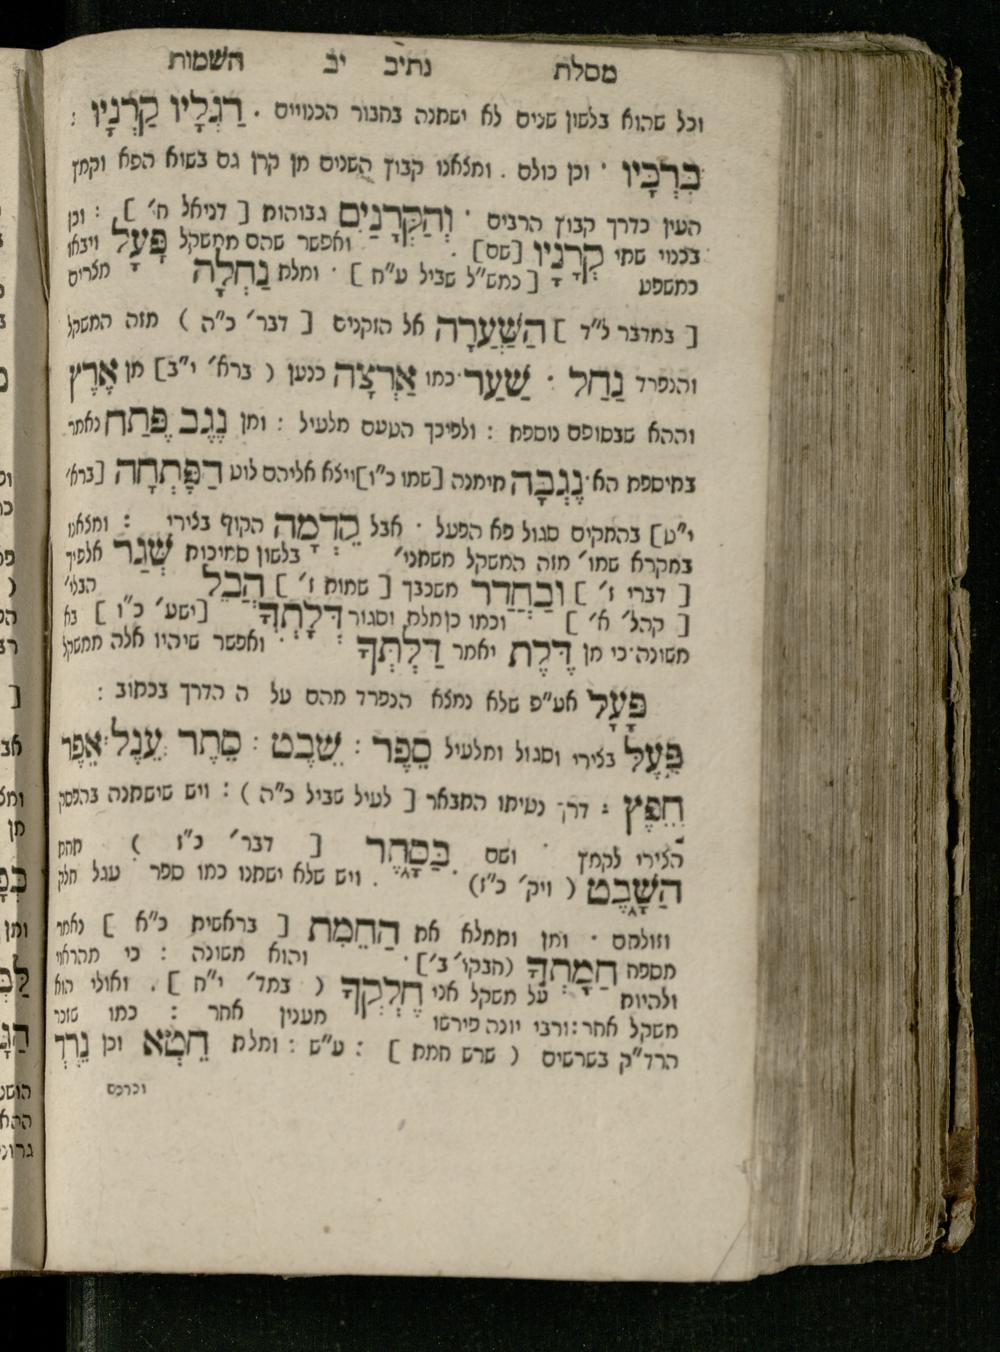 מסלת נתיב יב השמות
וכל שהוא בלשון שנים לא ישתנה בחבור הכנויים . רַגְלָיו קַרְנָיו :
בִּרְכָּיו · וכן כולם . ומצאנו קבוץ השנים מן קרן גם בשוא הפא וקמץ
העין כדרך קבוץ הרבים · וְהַקְּרָנַיִם גבוהות [ דניאל ח׳ ] : וכן
בכנוי שתי קְרָנָיו [שם] . ואפשר שהם ממשקל פָּעָל ויבאו
כמשפט [ כמש״ל שביל ע״ח ] · ומלת נַחְלָה מצרים
[ במדבר ל״ד ] הַשַּׁעְרָה אל הזקנים [ דבר׳ כ״ה ) מזה המשקל
והנפרד נַחַל · שַׁעַר · כמו אַרְצָה כנען ( ברא׳ י״ב] מן אֶרֶץ
וההא שבסופם נוספת : ולפיכך הטעם מלעיל : ומן נֶגֶב פֶּתַח נאמר
בתוספת הא · נֶגְבָּה תימנה [שמו׳ כ״ו] ויצא אליהם לוט הַפֶּתְחָה [ברא׳
י״ט] בהתקים סגול פא הפעל · אבל קֵדְמָה הקוף בצירי : ומצאנו
במקרא שמו׳ מזה המשקל משתני׳ בלשון סמיכות שְׁגַר אלפיך
[ דברי ז׳ ] וּבַחֲדַר משכבך [ שמות ז׳ ] הֲבֵל הבלי׳
[ קהל׳ א׳ ] וכמו כן מלת וסגור דְּלָתְךָ [ישע׳ כ״ו ] בא
משונה · כי מן דֶּלֶת יאמר דַּלְתְּךָ · ואפשר שיהיו אלה ממשקל
פָּעָל אע״פ שלא נמצא הנפרד מהם על ה הדרך בכתוב :
פֵּעֶל בצירי וסגול ומלעיל סֵפֶר : שֵׁבֶט : סֵתֶר עֵגֶל : אֵפֶר
חֵפֶץ : דרך נטיתו התבאר [ לעיל שביל כ״ה ) : ויש שישתנה בהפסק
הצירי לקמץ · ושם בַּסָּתֶר [ דבר׳ כ״ז ) תחת
הַשָּׁבֶט ( ויק׳ כ״ז) . ויש שלא ישתנו כמו ספר עגל חלק
וזולתם · ומן ותמלא את הַחֵמֶת [ בראשית כ״א ] נאמר
מספח חֲמָתְךָ (חבקו׳ ב׳] · והוא משונה : כי מהראוי
ולהיות על משקל אני חֶלְקְךָ ( במד׳ י״ח ] . ואולי הוא
משקל אחר : ורבי יונה פירשו מענין אחר : כמו שזכר
הרד״ק בשרשים ( שרש חמת ] : ע״ש : ומלת חֵטְא וכן נֵרְדְּ
וכרכם